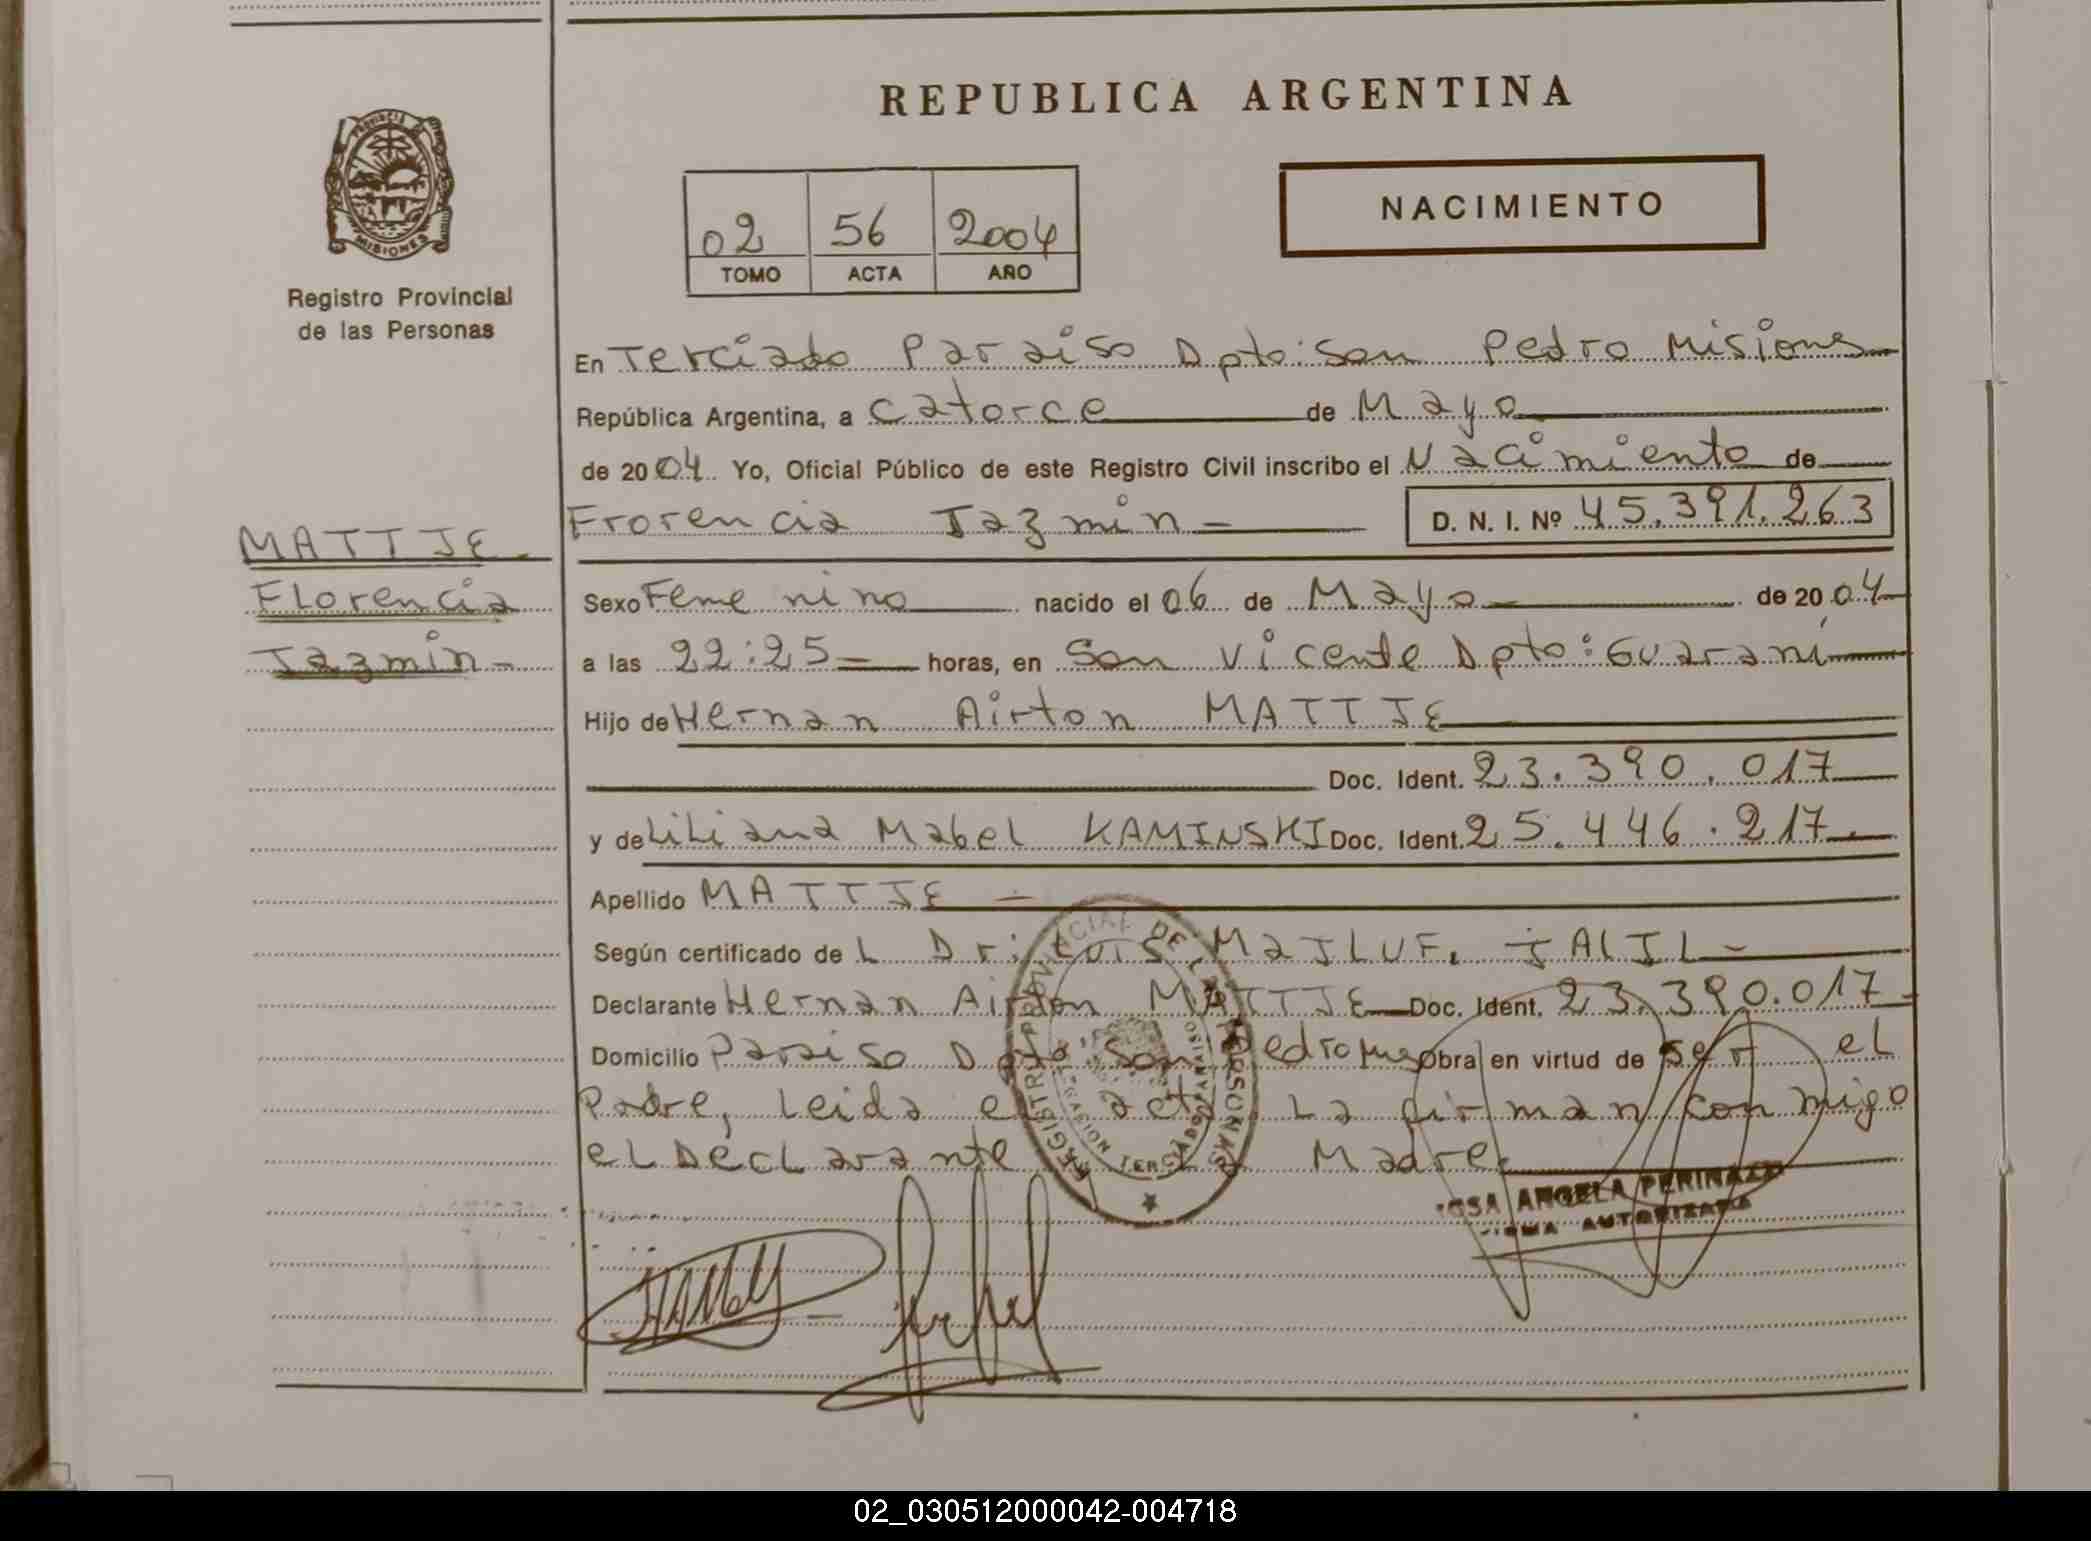 REPUBLICA ARGENTINA
PROVINCIA DE MISIONES
Registro Provincial
de las Personas
02 56 2004
TOMO ACTA AÑO
NACIMIENTO
MATTJE.
Florencia
Jazmin-
En Terciado Paraiso Dpto: San Pedro Misiones
República Argentina, a catorce de Mayo
de 2004. Yo, Oficial Público de este Registro Civil inscribo el Nacimiento de
Frorencia Jazmin- D. N. I. Nº 45.391.263
Sexo Femenino nacido el 06 de Mayo de 2004
a las 22:25 horas, en San Vicente Dpto: Guaraní
Hijo de Hernan Airton MATTJE
Doc. Ident. 23.390.017
y de Liliana Mabel KAMINSKI Doc. Ident. 25.446.217.
Apellido MATTJE -
Según certificado de L Dr: Luis MAJLUF, JALIL-
Declarante Hernan Airton MATTJE Doc. Ident. 23.390.017
Domicilio Paraiso Dpto San Pedro Mnes Obra en virtud de ser el
Padre, Leida el acta La firman conmigo
el Declarante Madre.
REGISTRO PROVINCIAL DE LAS PERSONAS
ROSA ANGELA PERINAZZO
FIRMA AUTORIZADA
02_030512000042-004718